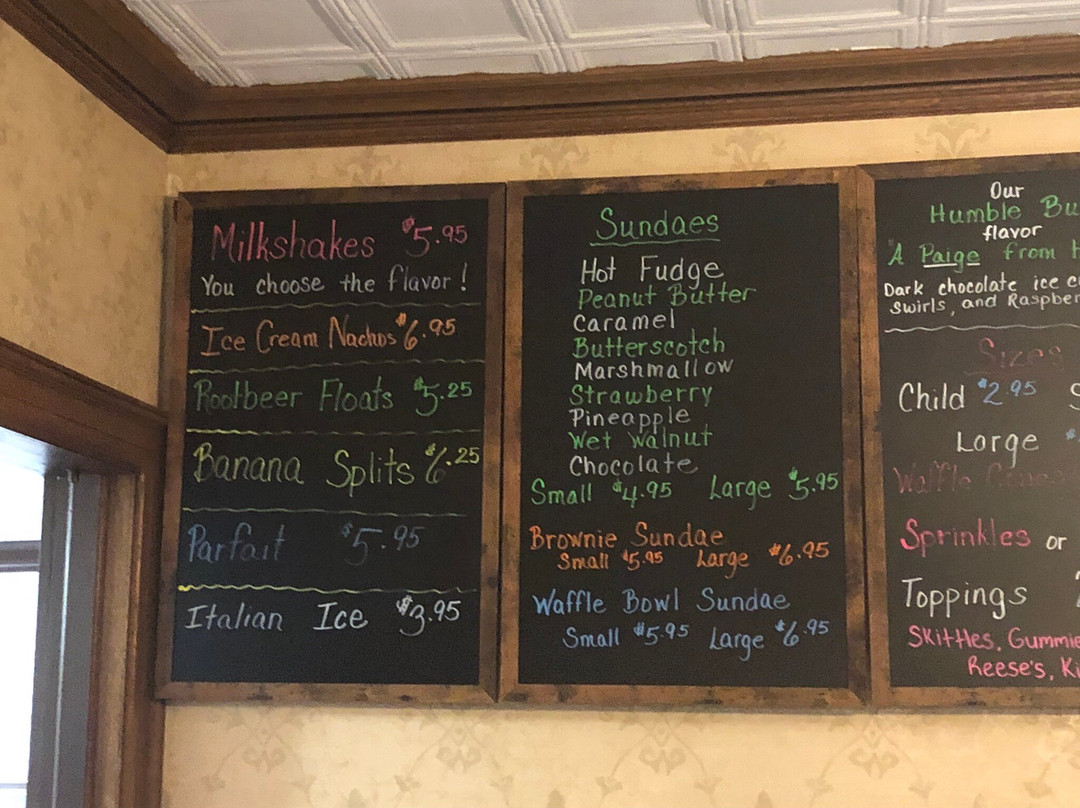 Milkshakes $5.95
You choose the flavor!
Ice Cream Nachos $6.95
Rootbeer Floats $5.25
Banana Splits $6.25
Parfait $5.95
Italian Ice $3.95
Sundaes
Hot Fudge
Peanut Butter
Caramel
Butterscotch
Marshmallow
Strawberry
Pineapple
Wet Walnut
Chocolate
Small $4.95 Large $5.95
Brownie Sundae
Small $5.95 Large $6.95
Waffle Bowl Sundae
Small $5.95 Large $6.95
Our
Humble Bu
flavor
"A Paige from
Dark chocolate ice c
Swirls, and Raspber
Sizes
Child $2.95 S
Large $
Waffle Cones
Sprinkles or
Toppings
Skittles, Gummie
Reese's, Ki